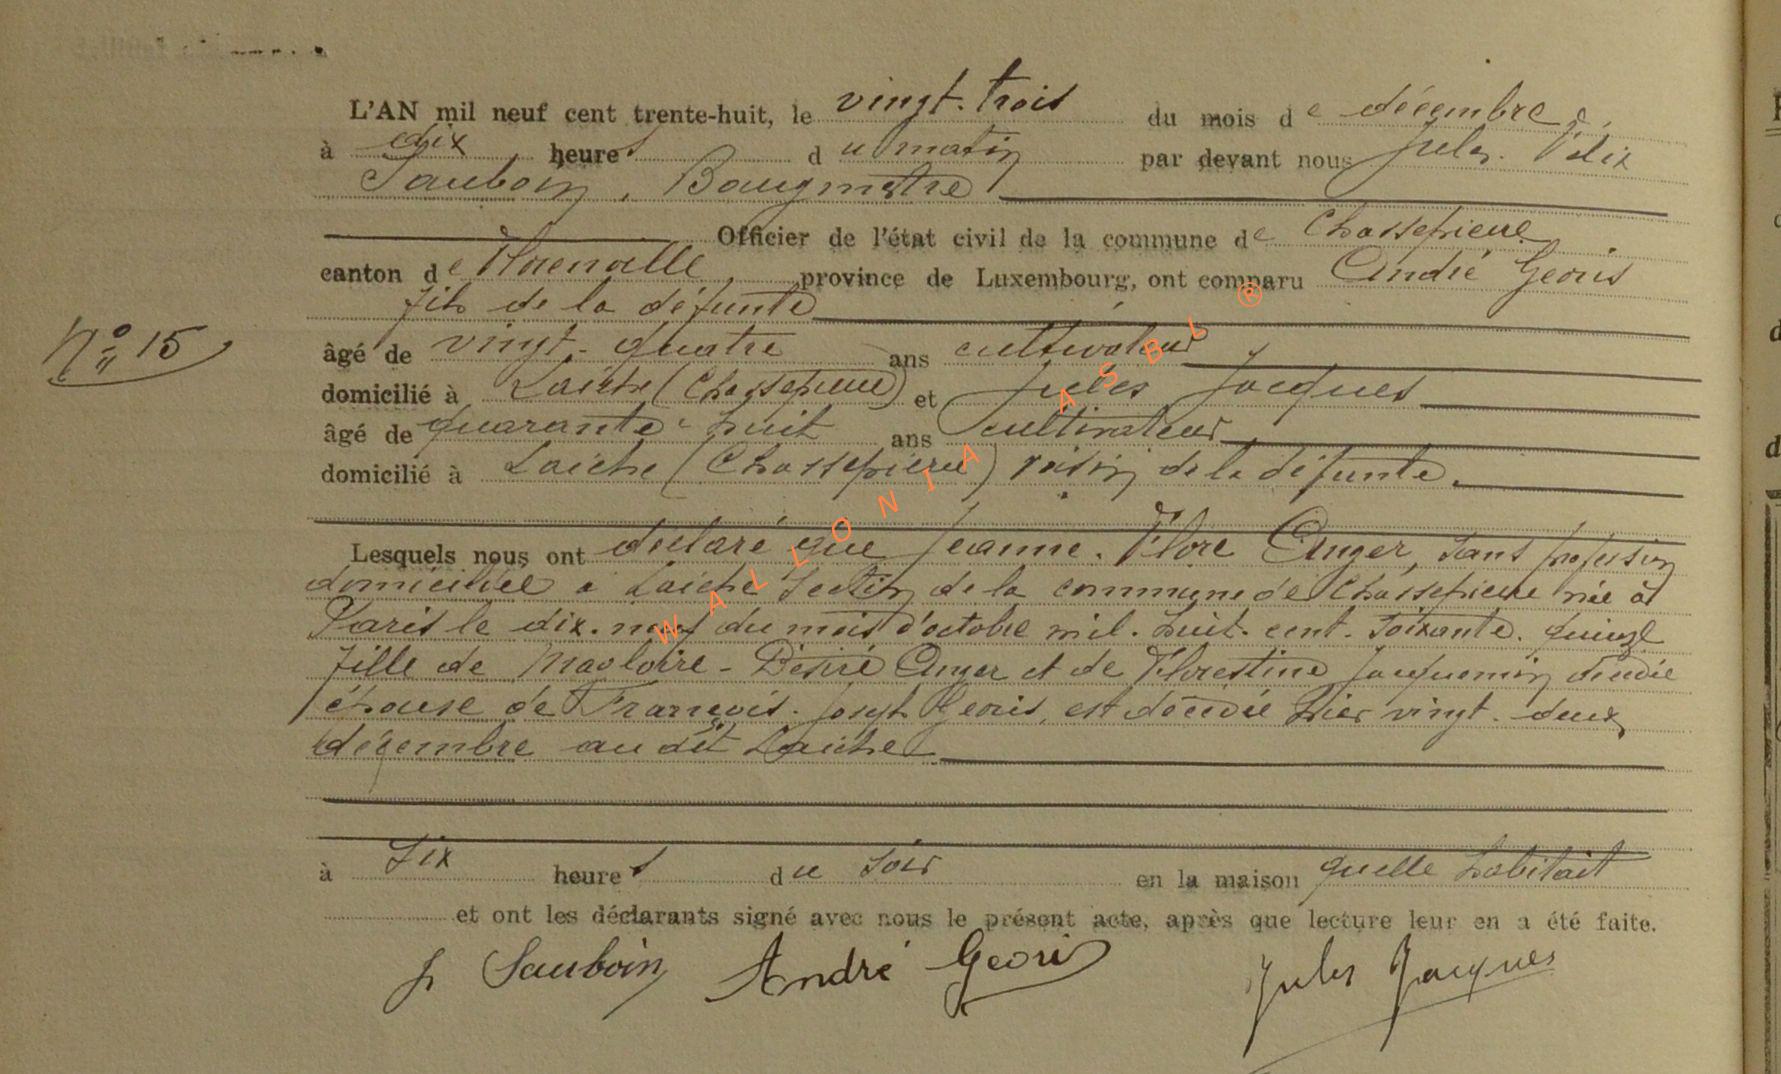 L'AN mil neuf cent trente-huit, le vingt-trois du mois de décembre,
à dix heures du matin par devant nous Jules Félix
Sauboin, Bourgmestre
Officier de l'état civil de la commune de Chassepierre
canton de Florenville, province de Luxembourg, ont comparu André Georis
fils de la défunte
âgé de vingt-quatre ans cultivateur
Nº 15
domicilié à Laiche (Chassepierre) et Jules Jacques
âgé de quarante-huit ans cultivateur
domicilié à Laiche (Chassepierre) voisin de la défunte.
Lesquels nous ont déclaré que Jeanne-Flore Anger, sans profession
domiciliée à Laiche section de la commune de Chassepierre née à
Paris le dix-neuf du mois d'octobre mil-huit-cent-soixante-quinze
fille de Magloire-Désiré Anger et de Florestine Jacquemin décédée
épouse de François-Joseph Georis, est décédée hier vingt-deux
décembre au dit Laiche
à six heures du soir en la maison quelle habitait
et ont les déclarants signé avec nous le présent acte, après que lecture leur en a été faite.
J Sauboin André Georis Jules Jacques
WALLONIA ASBL ®